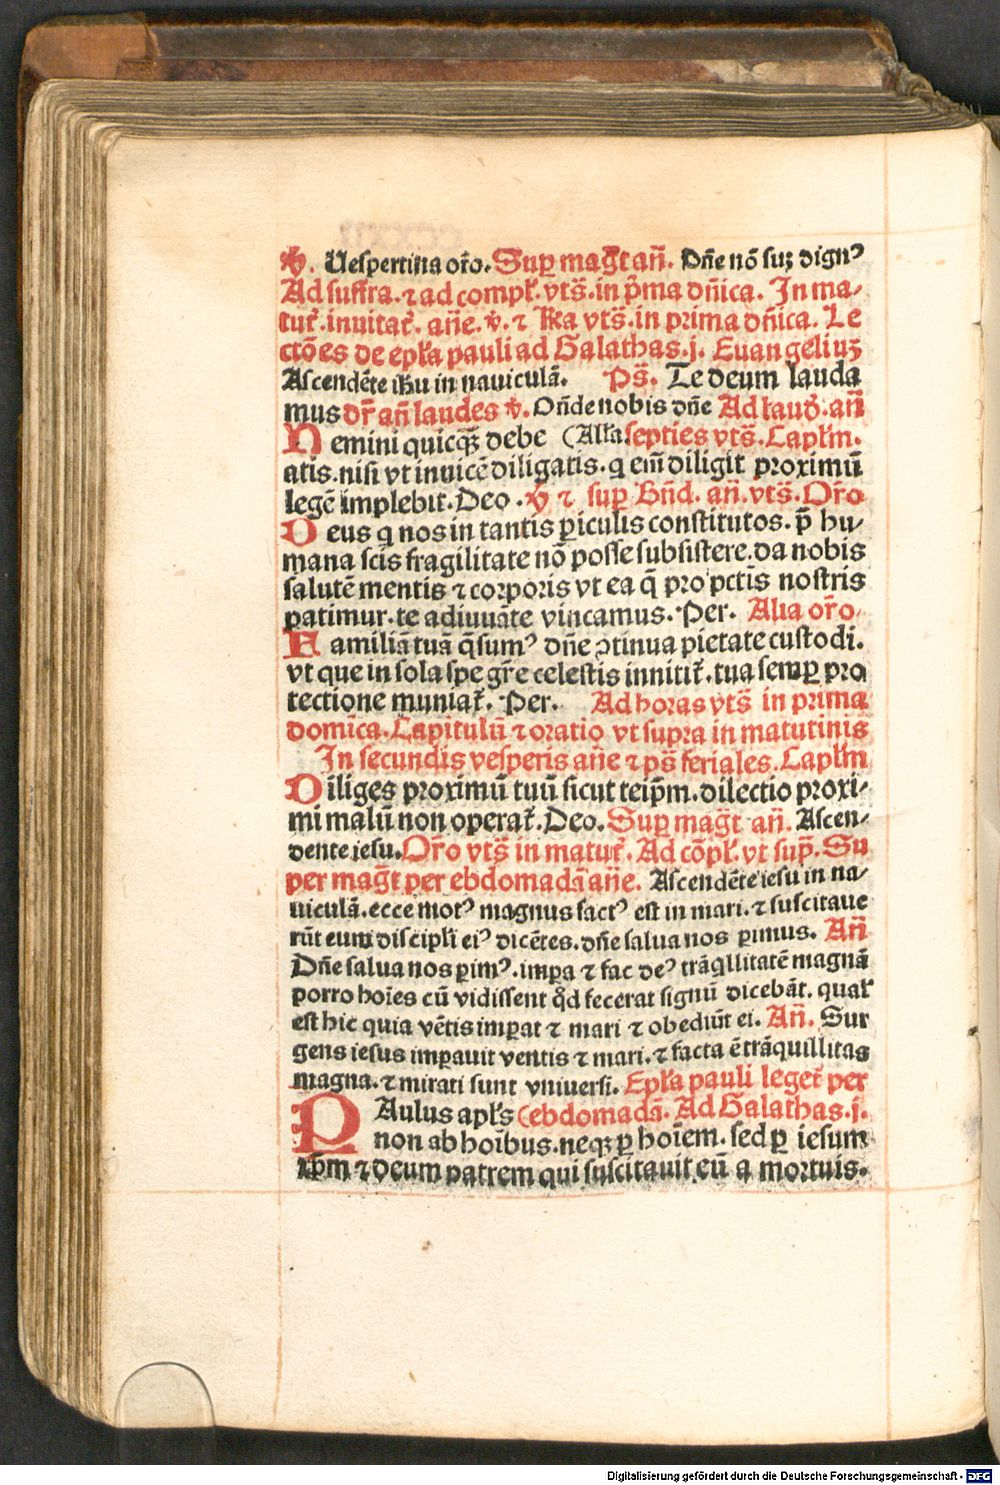 ℣. Uespertina or̃o. Suꝑ mag̃t an̄. Dn̄e nō suꝫ dignꝰ
Ad suffra. ⁊ ad compl̃. vts̄. in p̄ma dn̄ica. In ma-
tut̃. invitat̃. an̄e. ℣. ⁊ l̃c̃a vts̄. in prima dn̄ica. Le
ctōes de epl̃a pauli ad Galathas. j. Euangeliuꝫ
Ascendēte ih̄u in nauiculā. Ps̄. Te deum lauda
mus dr̃ an̄ laudes ℣. On̄de nobis dn̄e Ad laud̃. an̄
Nemini quicqꝫ debe (All̃a septies vts̄. Capl̃m.
atis. nisi vt inuicē diligatis. q em̄ diligit proximū
legē implebit. Deo. ℣ ⁊ suꝑ Bn̄d. an̄. vts̄. Or̃o
Deus q nos in tantis ꝑiculis constitutos. p̄ hu-
mana scis fragilitate nō posse subsistere. da nobis
salutē mentis ⁊ corporis vt ea q̄ pro pctīs nostris
patimur. te adiuuāte vincamus. Per. Alia or̃o.
Familiā tuā q̄sumꝰ dn̄e ꝯtinua pietate custodi.
vt que in sola spe gr̃e celestis innitit̃. tua semꝑ pro
tectione muniat̃. Per. Ad horas vts̄ in prima
domīca. Capitulū ⁊ oratio vt supra in matutinis
In secundis vesperis an̄e ⁊ ps̄ feriales. Capl̃m
Diliges proximū tuū sicut teip̄m. dilectio proxi-
mi malū non operat̃. Deo. Suꝑ mag̃t an̄. Ascen-
dente iesu. Or̃o vts̄ in matut̃. Ad cōpl̃. vt sup̄. Su
per mag̃t per ebdomadā an̄e. Ascendēte iesu in na-
uiculā. ecce motꝰ magnus factꝰ est in mari. ⁊ suscitaue
rūt eum discipl̃i eiꝰ dicētes. dn̄e salua nos ꝑimus. An̄
Dn̄e salua nos ꝑimꝰ. imꝑa ⁊ fac deꝰ trāqllitatē magnā
porro hoīes cū vidissent qd̃ fecerat signū dicebāt. qual̃
est hic quia vētis imꝑat ⁊ mari ⁊ obediūt ei. An̄. Sur
gens iesus imꝑauit ventis ⁊ mari. ⁊ facta ē trāquillitas
magna. ⁊ mirati sunt vniuersi. Epl̃a pauli leget̃ per
PAulus apl̃s (ebdomadā. Ad Galathas. j.
non ab hoībus. neqꝫ ꝑ hoīem. sed ꝑ iesum
xp̄m ⁊ deum patrem qui suscitauit eū a mortuis.
Digitalisierung gefördert durch die Deutsche Forschungsgemeinschaft - DFG